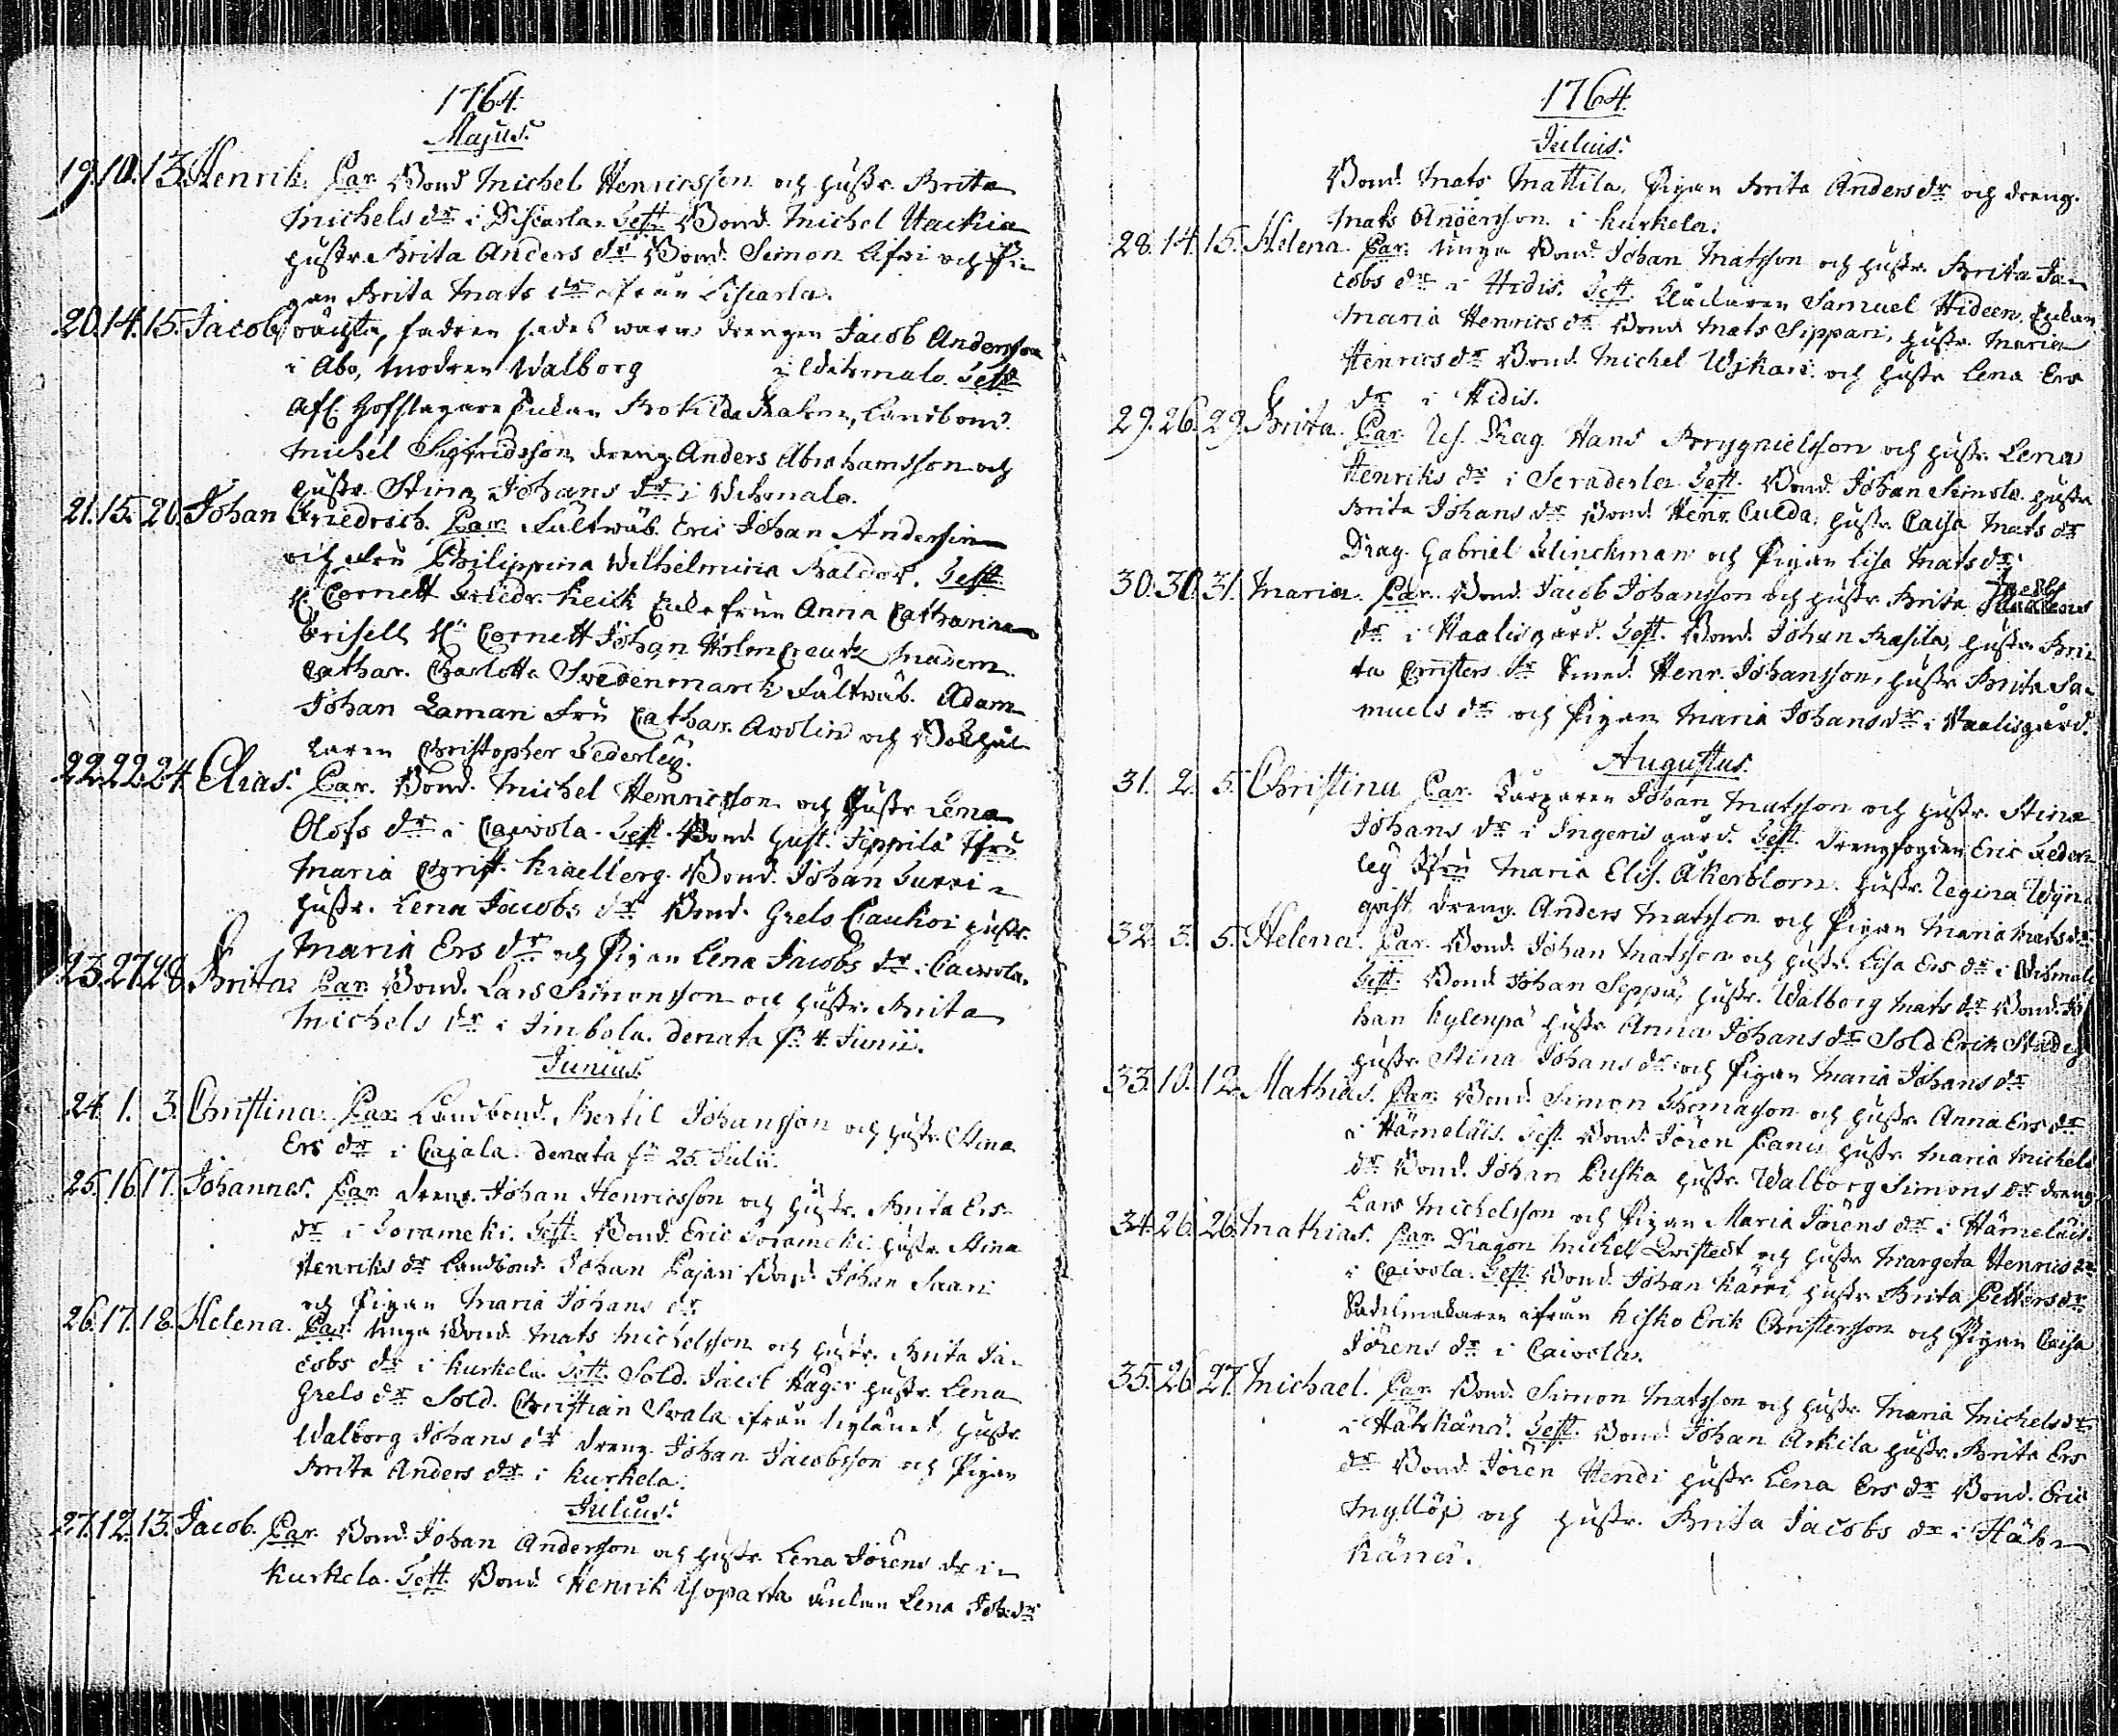 1764.
Majus.
19. 10. 13. Henrik. Par. Bond Michel Henricsson och hustr. Brita
Michels dr i Piscarla. Test. Bond. Michel Uackia
hustr. Brita Anders dr Bond. Simon och Pi-
gan Brita Mats dr ifrån Piscarla.
20. 14. 15. Jacob oächta, fadren sades wara drengen Jacob Andersson
i Abo, Modren Walborg i Wihmalo. Test.
Afl. Hofslagare Enkan Landbond.
Michel Sigfridsson, dreng Anders Abrahamsson och
hustr. Stina Johans dr i Wihmalo.
21. 15. 20. Johan Friedrich. Par. Fältwäb. Eric Johan Andersin
och Fru Philippina Wilhelmina Balder. Test.
H. Cornett Friedr. Enkefrun Anna Catharina
Brisell Hr Cornett Johan Holmcreutz Madem.
Cathar. Charlotta Svedenmarck Fältwäb. Adam
Johan Laman Fru Cathar. Avolin och Bokhål-
laren Christopher Federley.
22. 22. 24. Elias. Par. Bond. Michel Henricsson och hustr Lena
Olofs dr i Caivola. Test. Bond. Gust. Seppilä Jfru
Maria Christ. Kiaellerg. Bond. Johan
hustr. Lena Jacobs dr Bond. Grels Caukoi hustr.
Maria Ers dr och Pigan Lena Jacobs dr i Caivola.
23. 27. 28. Brita Par. Bond. Lars Simonsson och hustr. Brita
Michels dr i Jinbola. denata fr 4. Junii.
Junius.
24. 1. 3. Christina. Par. Landbond. Bertil Johansson och hustr. Stina
Ers dr i Cajala. denata fr 25. Julii.
25. 16. 17. Johannes. Par. dreng. Johan Henricsson och hustr. Brita Ers
dr i Sorameki. Test. Bond. Eric Sorameki hustr. Stina
Henriks dr Landbond. Johan Pajari Bond. Johan Saari
och Pigan Maria Johans dr.
26. 17. 18. Helena. Par. Unga Bond. Mats Michelsson och hustr. Brita Ja-
cobs dr i Kurkela. Test. Sold. Jacob Häger hustr. Lena
Grels dr Sold. Christian Svala ifrån hustr.
Walborg Johans dr dreng Johan Jacobsson och Pigan
Brita Anders dr i Kurkela.
Julius.
27. 12. 13. Jacob. Par. Bond. Johan Andersson och hustr. Lena Jörens dr i
Kurkela. Test. Bond Henrik Enkan Lena Joh. dr
1764.
Julius.
Bond. Mats Mattila, Pigan Brita Anders dr och dreng.
Mats Andersson i Kurkela.
28. 14. 15. Helena. Par. Unga Bond. Johan Matsson och hustr. Brita Ja-
cobs dr i Hidis. Test. Klåckaren Samuel Hideen, Enkan
Maria Henrics dr Bond Mats Sippari, hustr. Maria
Henrics dr Bond. Michel Wikari och hustr Lena Ers
dr i Hidis.
29. 26. 29. Brita. Par. Res. Drag. Hans Brygnielsson och hustr. Lena
Henriks dr i Seraderla. Test. Bond. Johan Simola hustr.
Brita Johans dr Bond Henr. Culda, hustr. Caisa Mats dr
Drag. Gabriel Klinckman och Pigan Lisa Mats dr.
30. 30. 31. Maria. Par. Bond. Jacob Johansson och hustr. Brita
dr i Waalisgård. Test. Bond. Johan Rasila, hustr. Bri-
ta Christers dr Smed. Henr. Johansson, hustr. Brita Sa-
muels dr och Pigan Maria Johans dr i Waalisgård.
Augustus.
31. 2. 5. Christina Par. Johan Matsson och hustr. Stina
Johans dr i Ingeris gård. Test. drengfogden Eric Feder-
ley Jfru Maria Elis. Åkerblom. hustr. Regina Wijn-
qvist dreng. Anders Matsson och Pigan Maria Mats dr
32. 3. 5. Helena. Par. Bond. Johan Matsson och hustr. Lisa Ers dr i Wihmalo
Test. Bond Johan Seppä, hustr. Walborg Mats dr Bond. Jo
han Kylenpä hustr. Anna Johans dr Sold Erik Stadig
hustr Stina Johans dr och Pigan Maria Johans dr
33. 10. 12. Mathias. Par. Bond Simon Thomasson och hustr. Anna Ers dr
i Hämeläis. Test. Bond. Jören Panu hustr. Maria Michels
dr Bond. Johan Puska hustr. Walborg Simons dr dreng
Lars Michelsson och Pigan Maria Jörens dr i Hämeläis.
34. 26. 26. Mathias. Par. Dragon Michel Qvistedt och hustr Margeta Henrics dr
i Caivola. Test. Bond. Johan Karri, hustr. Brita Petters dr
Sadelmakaren ifrån Kisko Erik Christersson och Pigan Caisa
Jörens dr i Caivola.
35. 26. 27. Michael. Par. Bond. Simon Matsson och hustr. Maria Michels dr
i Hähkänä. Test. Bond. Johan Arkila hustr. Brita Ers
dr Bond. Jören Hendi hustr. Lena Ers dr Bond. Eric
Myllöjä och hustr. Brita Jacobs dr i Häh-
känä.